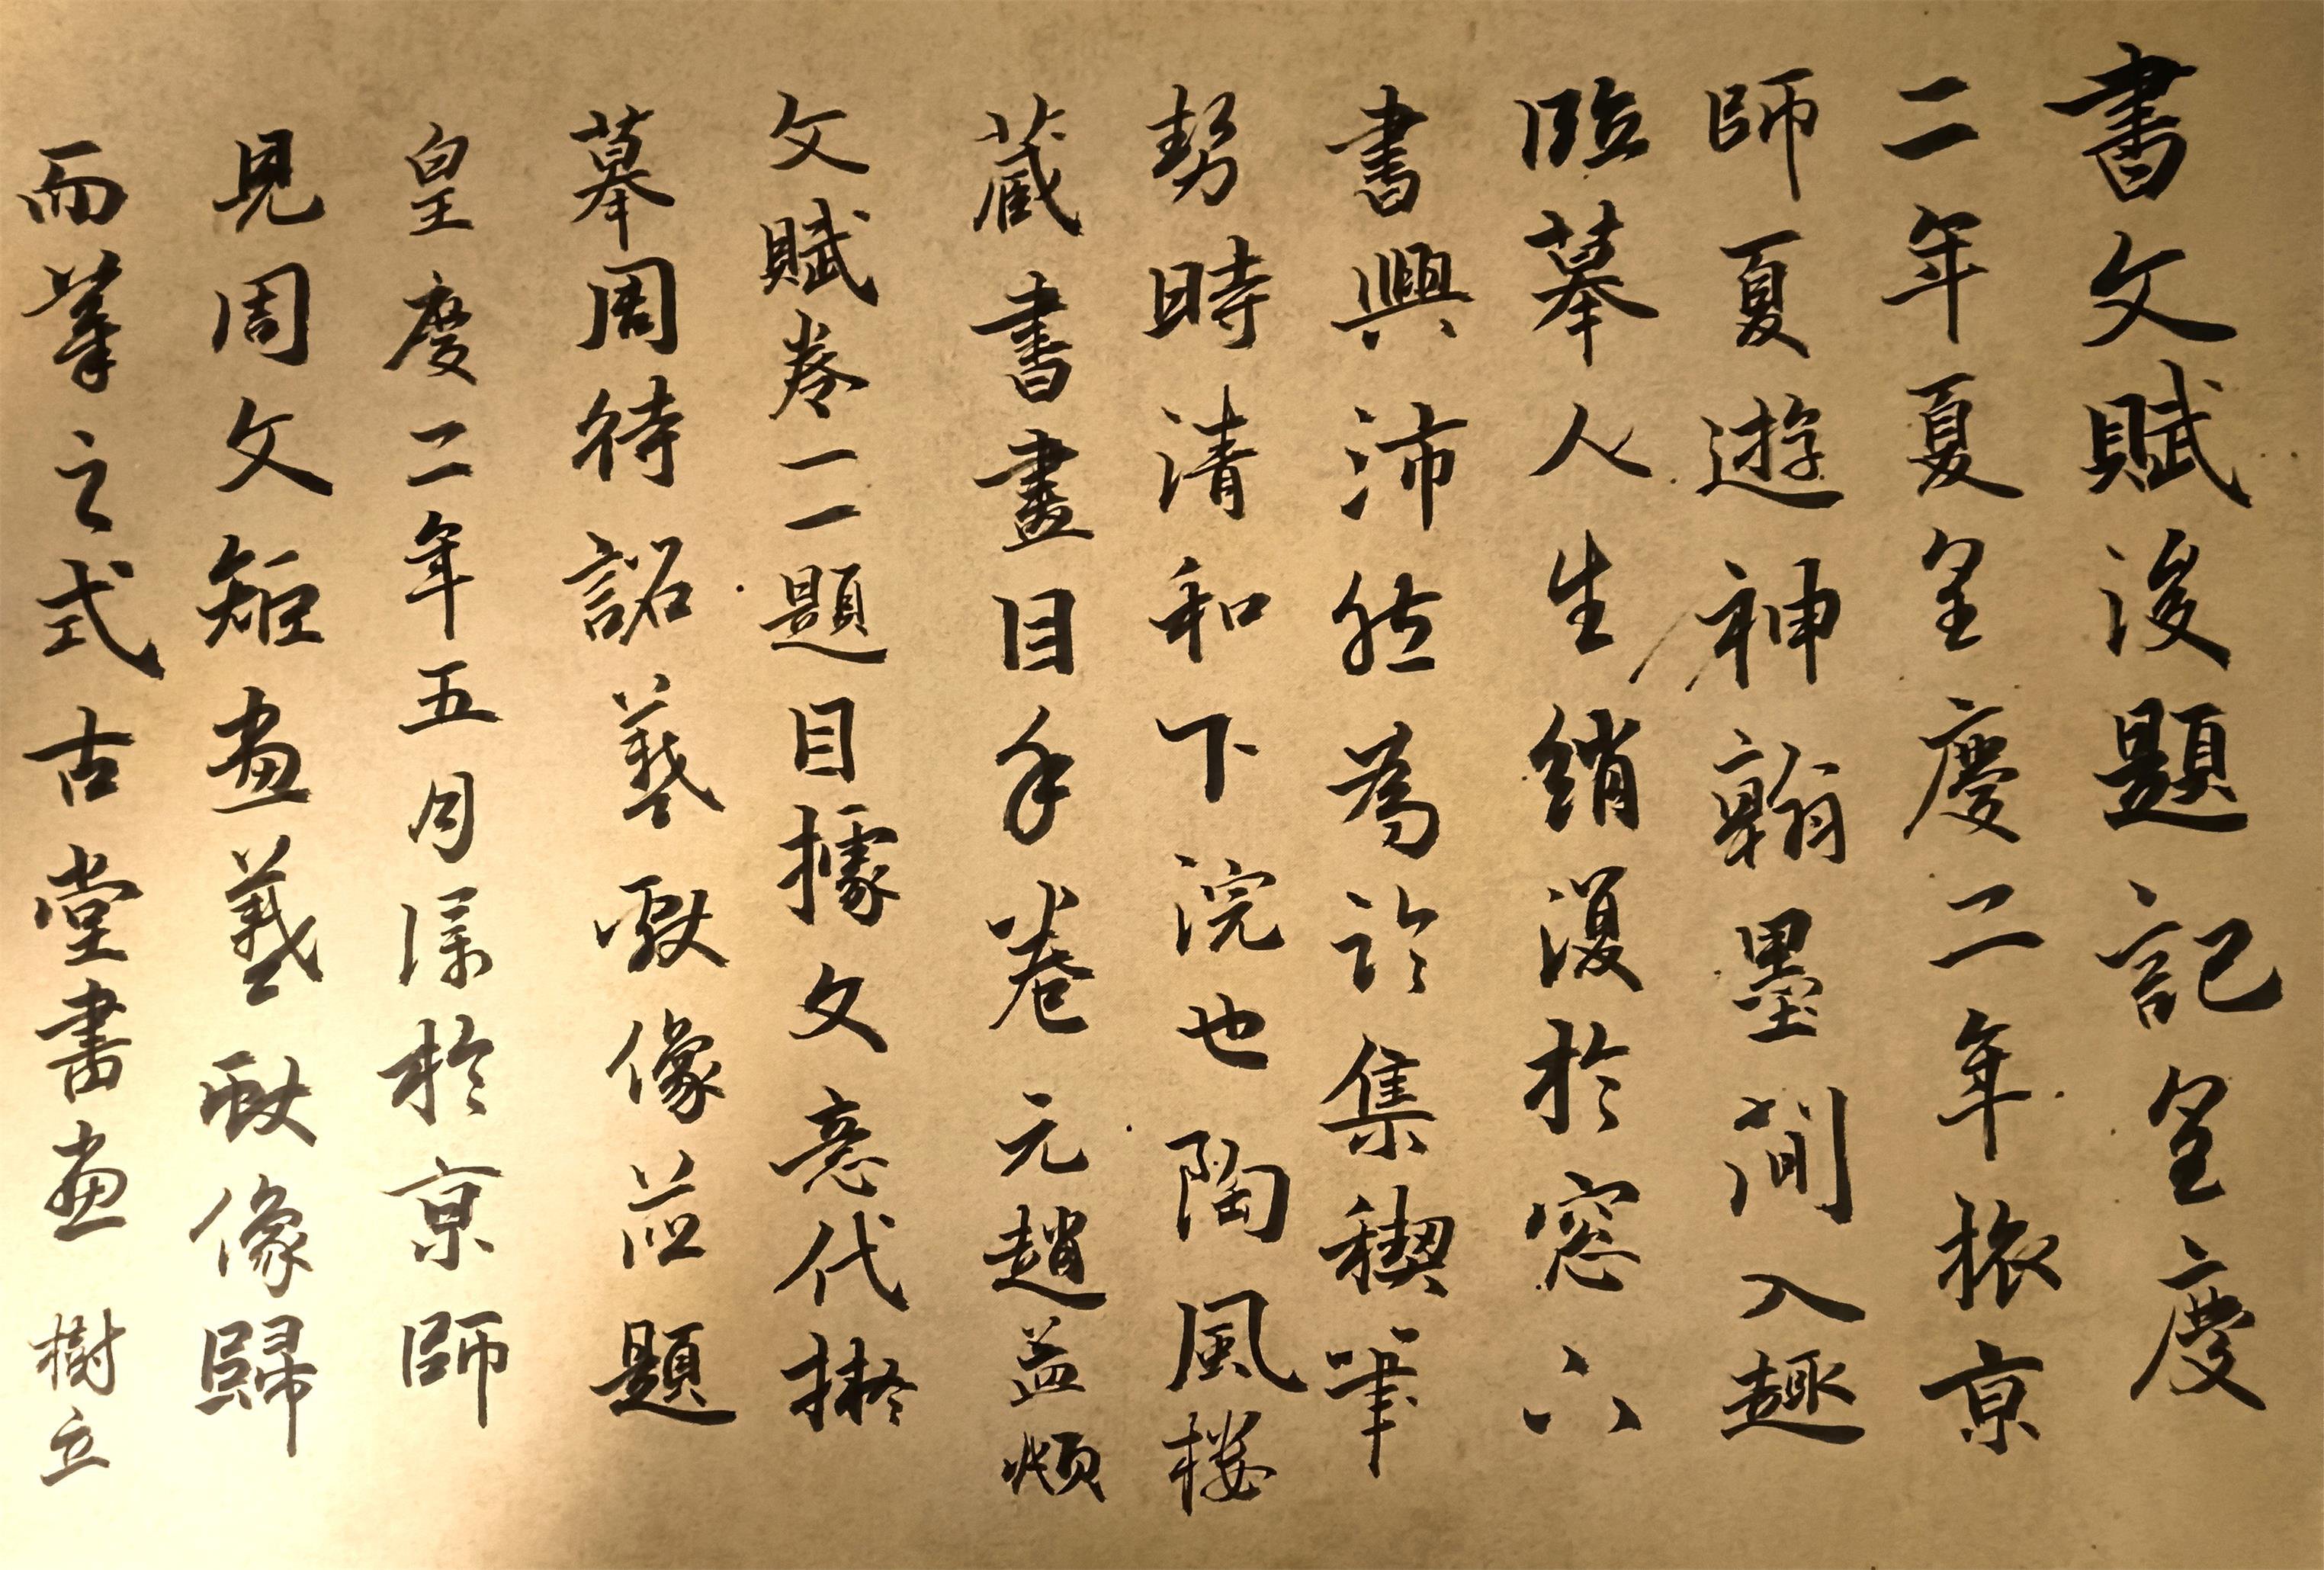 書文賦後題記皇慶
二年夏皇慶二年旅京
師夏遊神翰墨間入趣
臨摹人生綃復於窓六
書興沛然為訟集稧筆
契時清和下浣也陶風楼
蔵書畫目手卷元趙益頫
文賦卷一一題目據文意代擬
摹周待詔羲獻像並題
皇慶二年五月深於京師
見周文矩画羲獻像歸
而筆之式古堂書画 樹立